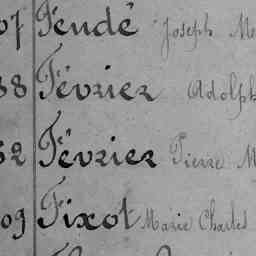 07 Fendé Joseph M
38 Février Adolph
52 Février Pierre M
09 Fixot Marie Charles